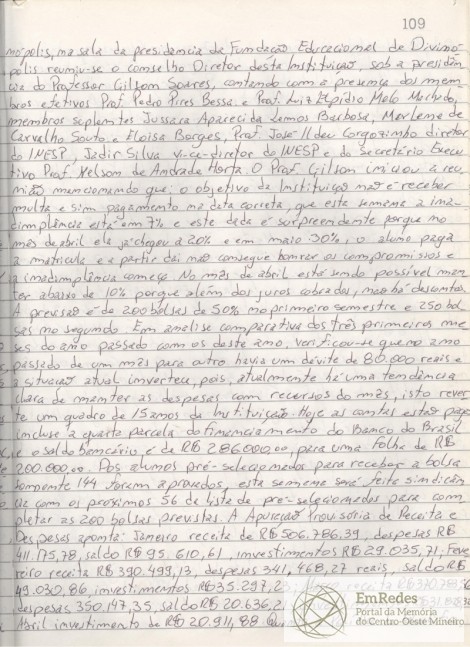 109
nópolis, na sala da presidencia da Fundação Educacional de Divinó-
polis reuniu-se o conselho Diretor desta Instituição, sob a presidên-
cia do Professor Gilson Soares, contando com a presença dos mem-
bros efetivos Prof. Pedro Pires Bessa e Prof. Luiz Elpídio Melo Machado,
membros suplentes Jussara Aparecida Lemos Barbosa, Marlene de
Carvalho Souto e Eloisa Borges, Prof. José Ildeu Gorgozinho diretor
do INESP, Jadir Silva vice-diretor do INESP e do Secretário Execu-
tivo Prof. Nelson de Andrade Horta. O Prof. Gilson iniciou a reu-
nião mencionando que: o objetivo da Instituição não é receber
multa e sim pagamento na data correta, que esta semana a ina-
dimplência está em 7% e este dado é surpreendente porque no
mês de abril ela já chegou a 20% e em maio 30%, o aluno paga
a matrícula e a partir daí não consegue honrar os compromissos e
a inadimplência começa. No mês de abril está sendo possível man-
ter abaixo de 10% porque além dos juros cobrados, não há descontos.
A previsão é de 200 bolsas de 50% no primeiro semestre e 250 bol-
sas no segundo. Em analise comparativa dos três primeiros me-
ses do ano passado com os deste ano, verificou-se que no ano
passado de um mês para outro havia um dévite de 80.000 reais e
a situação atual inverteu, pois, atualmente há uma tendência
clara de manter as despesas com recursos do mês, isto rever-
te um quadro de 15 anos da Instituição. Hoje as contas estão pagas
incluse a quarta parcela do financiamento do Banco do Brasil
e o saldo bancário é de R$ 286.000,00, para uma folha de R$
200.000,00. Dos alunos pré-selecionados para receber a bolsa
somente 144 foram aprovados, esta semana será feita sindicân-
cia com os proximos 56 da lista de pré-selecionados para com-
pletar as 200 bolsas previstas. A Apuração Provisória de Receita e
Despesas aponta: Janeiro receita de R$ 506.786,39, despesas R$
411.175,78, saldo R$ 95.610,61, investimentos R$ 29.035,71; Feve-
reiro receita R$ 390.499,13, despesas 341.468,27 reais, saldo R$
49.030,86, investimentos R$ 35.297,23, receita R$
despesas 350.147,35, saldo R$ 20.636,2
Abril investimento de R$ 20.911,88
EmRedes
Portal da Memória
do Centro-Oeste Mineiro